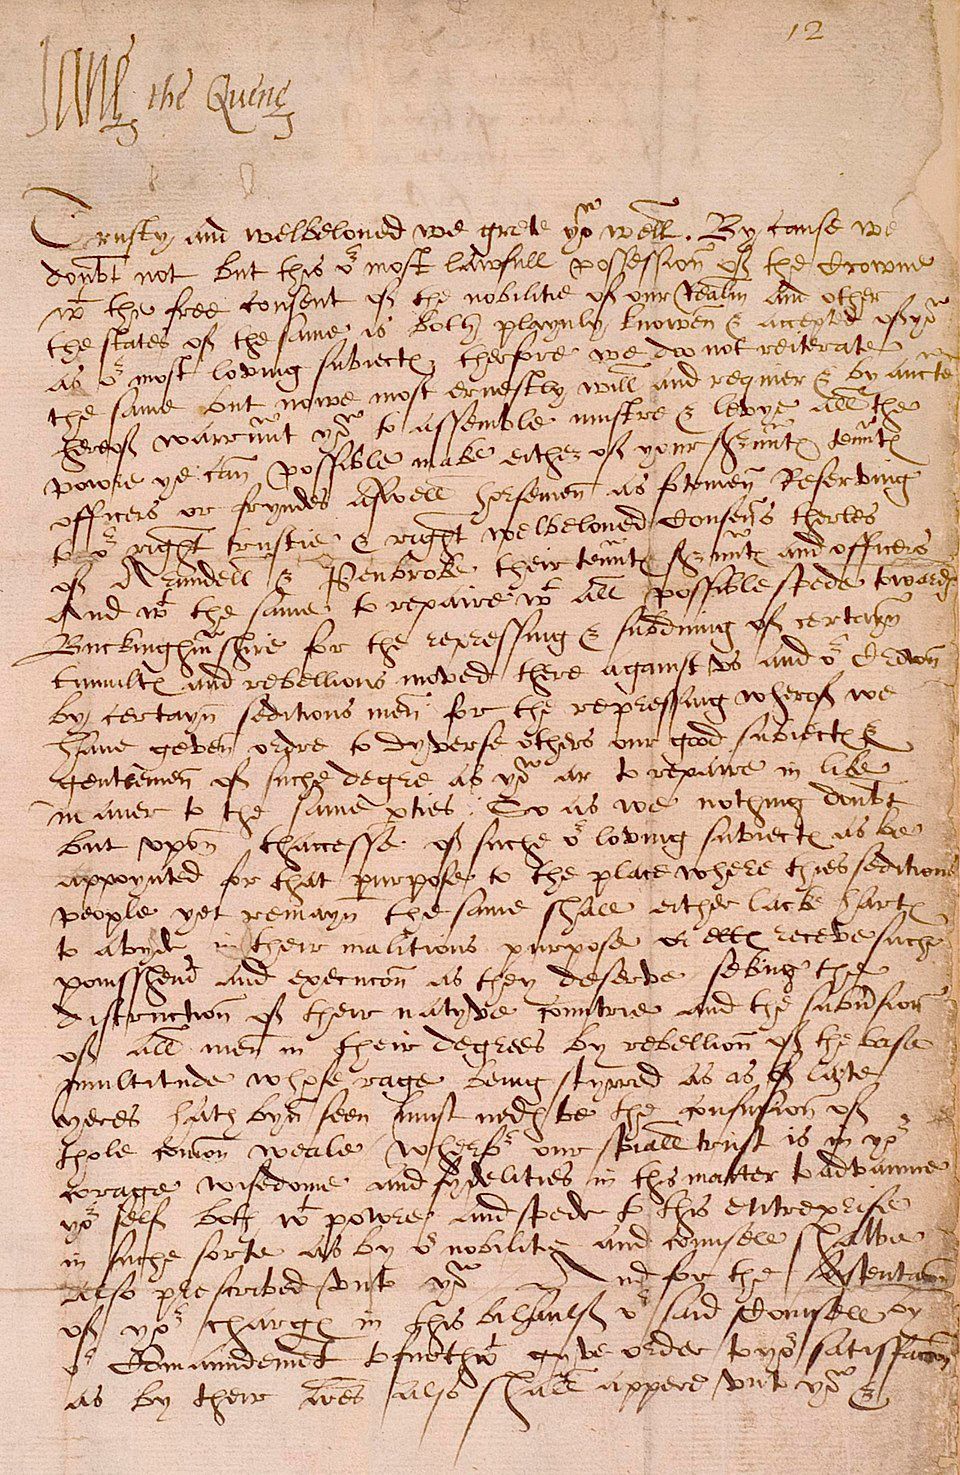 12
Jane the Quene
Trusty and welbeloved we grete yow well. By cause we
doubt not but this oʳ most lawfull possession of the Crowne
wᵗ the free consent of the nobilitie of our Realm and other
the states of the same is both playnly knowen & accepted of yoᵘ
as oʳ most loving subiectes therfore we do not reiterate
the same but nowe most ernestly will and requier & by aucte
hereof warrᵃunt yoᵘ to assemble mustre & levye all the
powre ye can possible make either of your sʳuᵃnts tenᵃnts
officers or fryndes aswell horsemen as fotemen Reserving
to oʳ right trustie & right welbeloved Cousens therles
of Arundell & Penbroke their tenᵃnts sʳuᵃnts and officers
And wᵗ the same to repaire wᵗ all possible spede towards
Buckinghᵃmshire for the repressing & subduing of certayn
tumultes and rebellions moved there against us and oʳ Crown
by certayn seditious men for the repressing wherof we
have geven ordre to dyverse others our good subiectes &
gentlemen of suche degre as yoᵘ ar to repaire in like
maner to the same pties. So as we nothing doubt
but upon thaccesse of suche oʳ loving subiectes as be
appoynted for that purpose to the place where thies seditious
people yet remayn the same shall either lacke hartes
to abyde in their malitious purpose or elles receve suche
punisshemᵗ and execucon as they deserve seking the
distruction of their natyve countrie and the subversion
of all men in their degrees by rebellion of the base
multitude whose rage being styrred as of late
yeres hath byn seen must nedes be the confusion of
thole comon weale wherfoʳ our speciall trust is in yoʳ
corage wisedome and fydelities in this matter to advaunce
yoʳ self both wᵗ powre and spede to this enterprise
in suche sorte as by oʳ nobilite and counsell shalbe
also prescribed unto yoᵘ And for the sustentacon
of yoʳ charges in this behaulf oʳ said Counsell by
oʳ Comaundement do furthwᵗ gyve order to yoʳ satisfacon
as by their lres also shall appere unto yoᵘ &